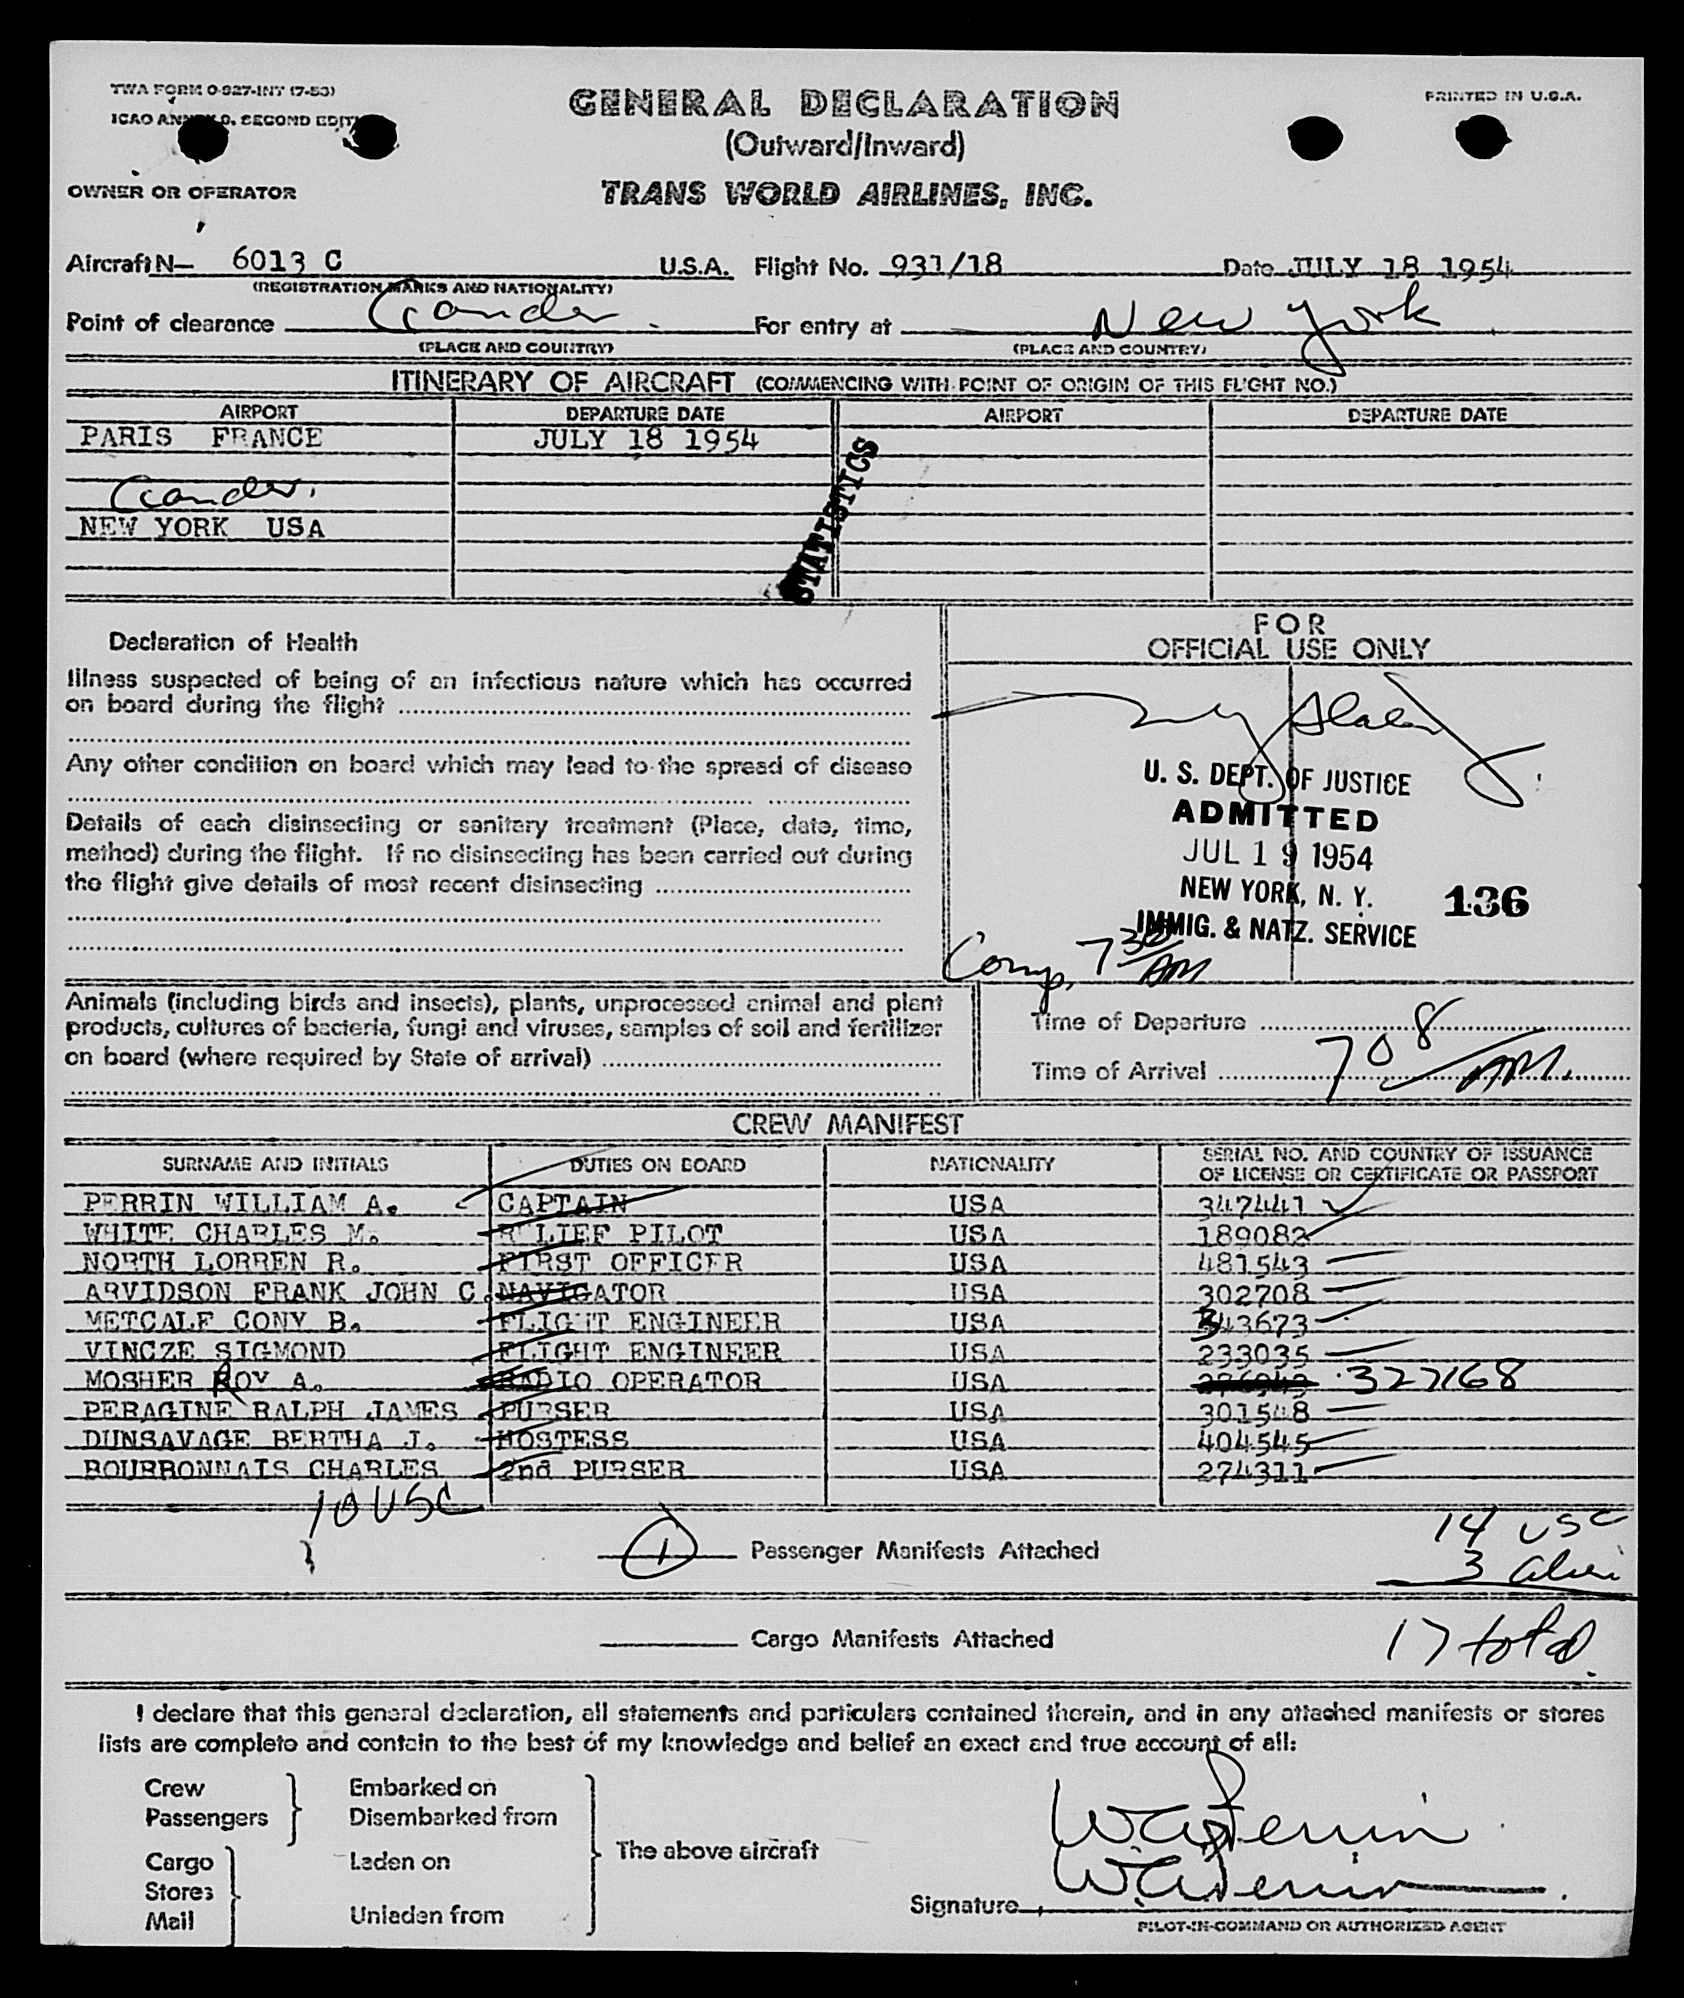 TWA FORM O-927-INT (7-53)
PRINTED IN U.S.A.
GENERAL DECLARATION
(Outward/Inward)
OWNER OR OPERATOR
TRANS WORLD AIRLINES, INC.
Aircraft N— 6013 C U.S.A. Flight No. 931/18 Date JULY 18 1954
(REGISTRATION MARKS AND NATIONALITY)
Point of clearance Gander For entry at New York
(PLACE AND COUNTRY) (PLACE AND COUNTRY)
ITINERARY OF AIRCRAFT (COMMENCING WITH POINT OF ORIGIN OF THIS FLIGHT NO.)
AIRPORT DEPARTURE DATE AIRPORT DEPARTURE DATE
PARIS FRANCE JULY 18 1954
Gander.
NEW YORK USA
STATISTICS
FOR
OFFICIAL USE ONLY
Declaration of Health
Illness suspected of being of an infectious nature which has occurred
on board during the flight
Any other condition on board which may lead to the spread of disease
Details of each disinsecting or sanitary treatment (Place, date, time,
method) during the flight. If no disinsecting has been carried out during
the flight give details of most recent disinsecting
U. S. DEPT. OF JUSTICE
ADMITTED
JUL 19 1954
NEW YORK, N. Y. 136
IMMIG. & NATZ. SERVICE
Comp. 7 30 AM
Animals (including birds and insects), plants, unprocessed animal and plant
products, cultures of bacteria, fungi and viruses, samples of soil and fertilizer
on board (where required by State of arrival)
Time of Departure
Time of Arrival 7 08 AM.
CREW MANIFEST
SURNAME AND INITIALS DUTIES ON BOARD NATIONALITY SERIAL NO. AND COUNTRY OF ISSUANCE
OF LICENSE OR CERTIFICATE OR PASSPORT
PERRIN WILLIAM A. CAPTAIN USA 347441
WHITE CHARLES M. RELIEF PILOT USA 189082
NORTH LORREN R. FIRST OFFICER USA 481543
ARVIDSON FRANK JOHN C. NAVIGATOR USA 302708
METCALF CONY B. FLIGHT ENGINEER USA 343673
VINCZE SIGMOND FLIGHT ENGINEER USA 233035
MOSHER ROY A. RADIO OPERATOR USA 327168
PERAGINE RALPH JAMES PURSER USA 301548
DUNSAVAGE BERTHA J. HOSTESS USA 404545
BOURBONNAIS CHARLES 2nd PURSER USA 274311
10 USC
1 Passenger Manifests Attached
14 USC
3 alien
Cargo Manifests Attached
17 total
I declare that this general declaration, all statements and particulars contained therein, and in any attached manifests or stores
lists are complete and contain to the best of my knowledge and belief an exact and true account of all:
Crew Embarked on
Passengers Disembarked from
The above aircraft
Cargo Laden on
Stores
Mail Unladen from
WA Perrin
Signature WA Perrin
PILOT-IN-COMMAND OR AUTHORIZED AGENT